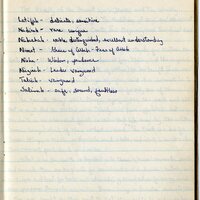 Latifah - delicate, sensitive
Nadirah - rare, unique
Nabeehah - noble, distinguished, excellent understanding
Nimat - Grace of Allah
Nuha - Wisdom, prudence
Leader vanguard
Taliah - vanguard
Salimah - safe, sound, faultless